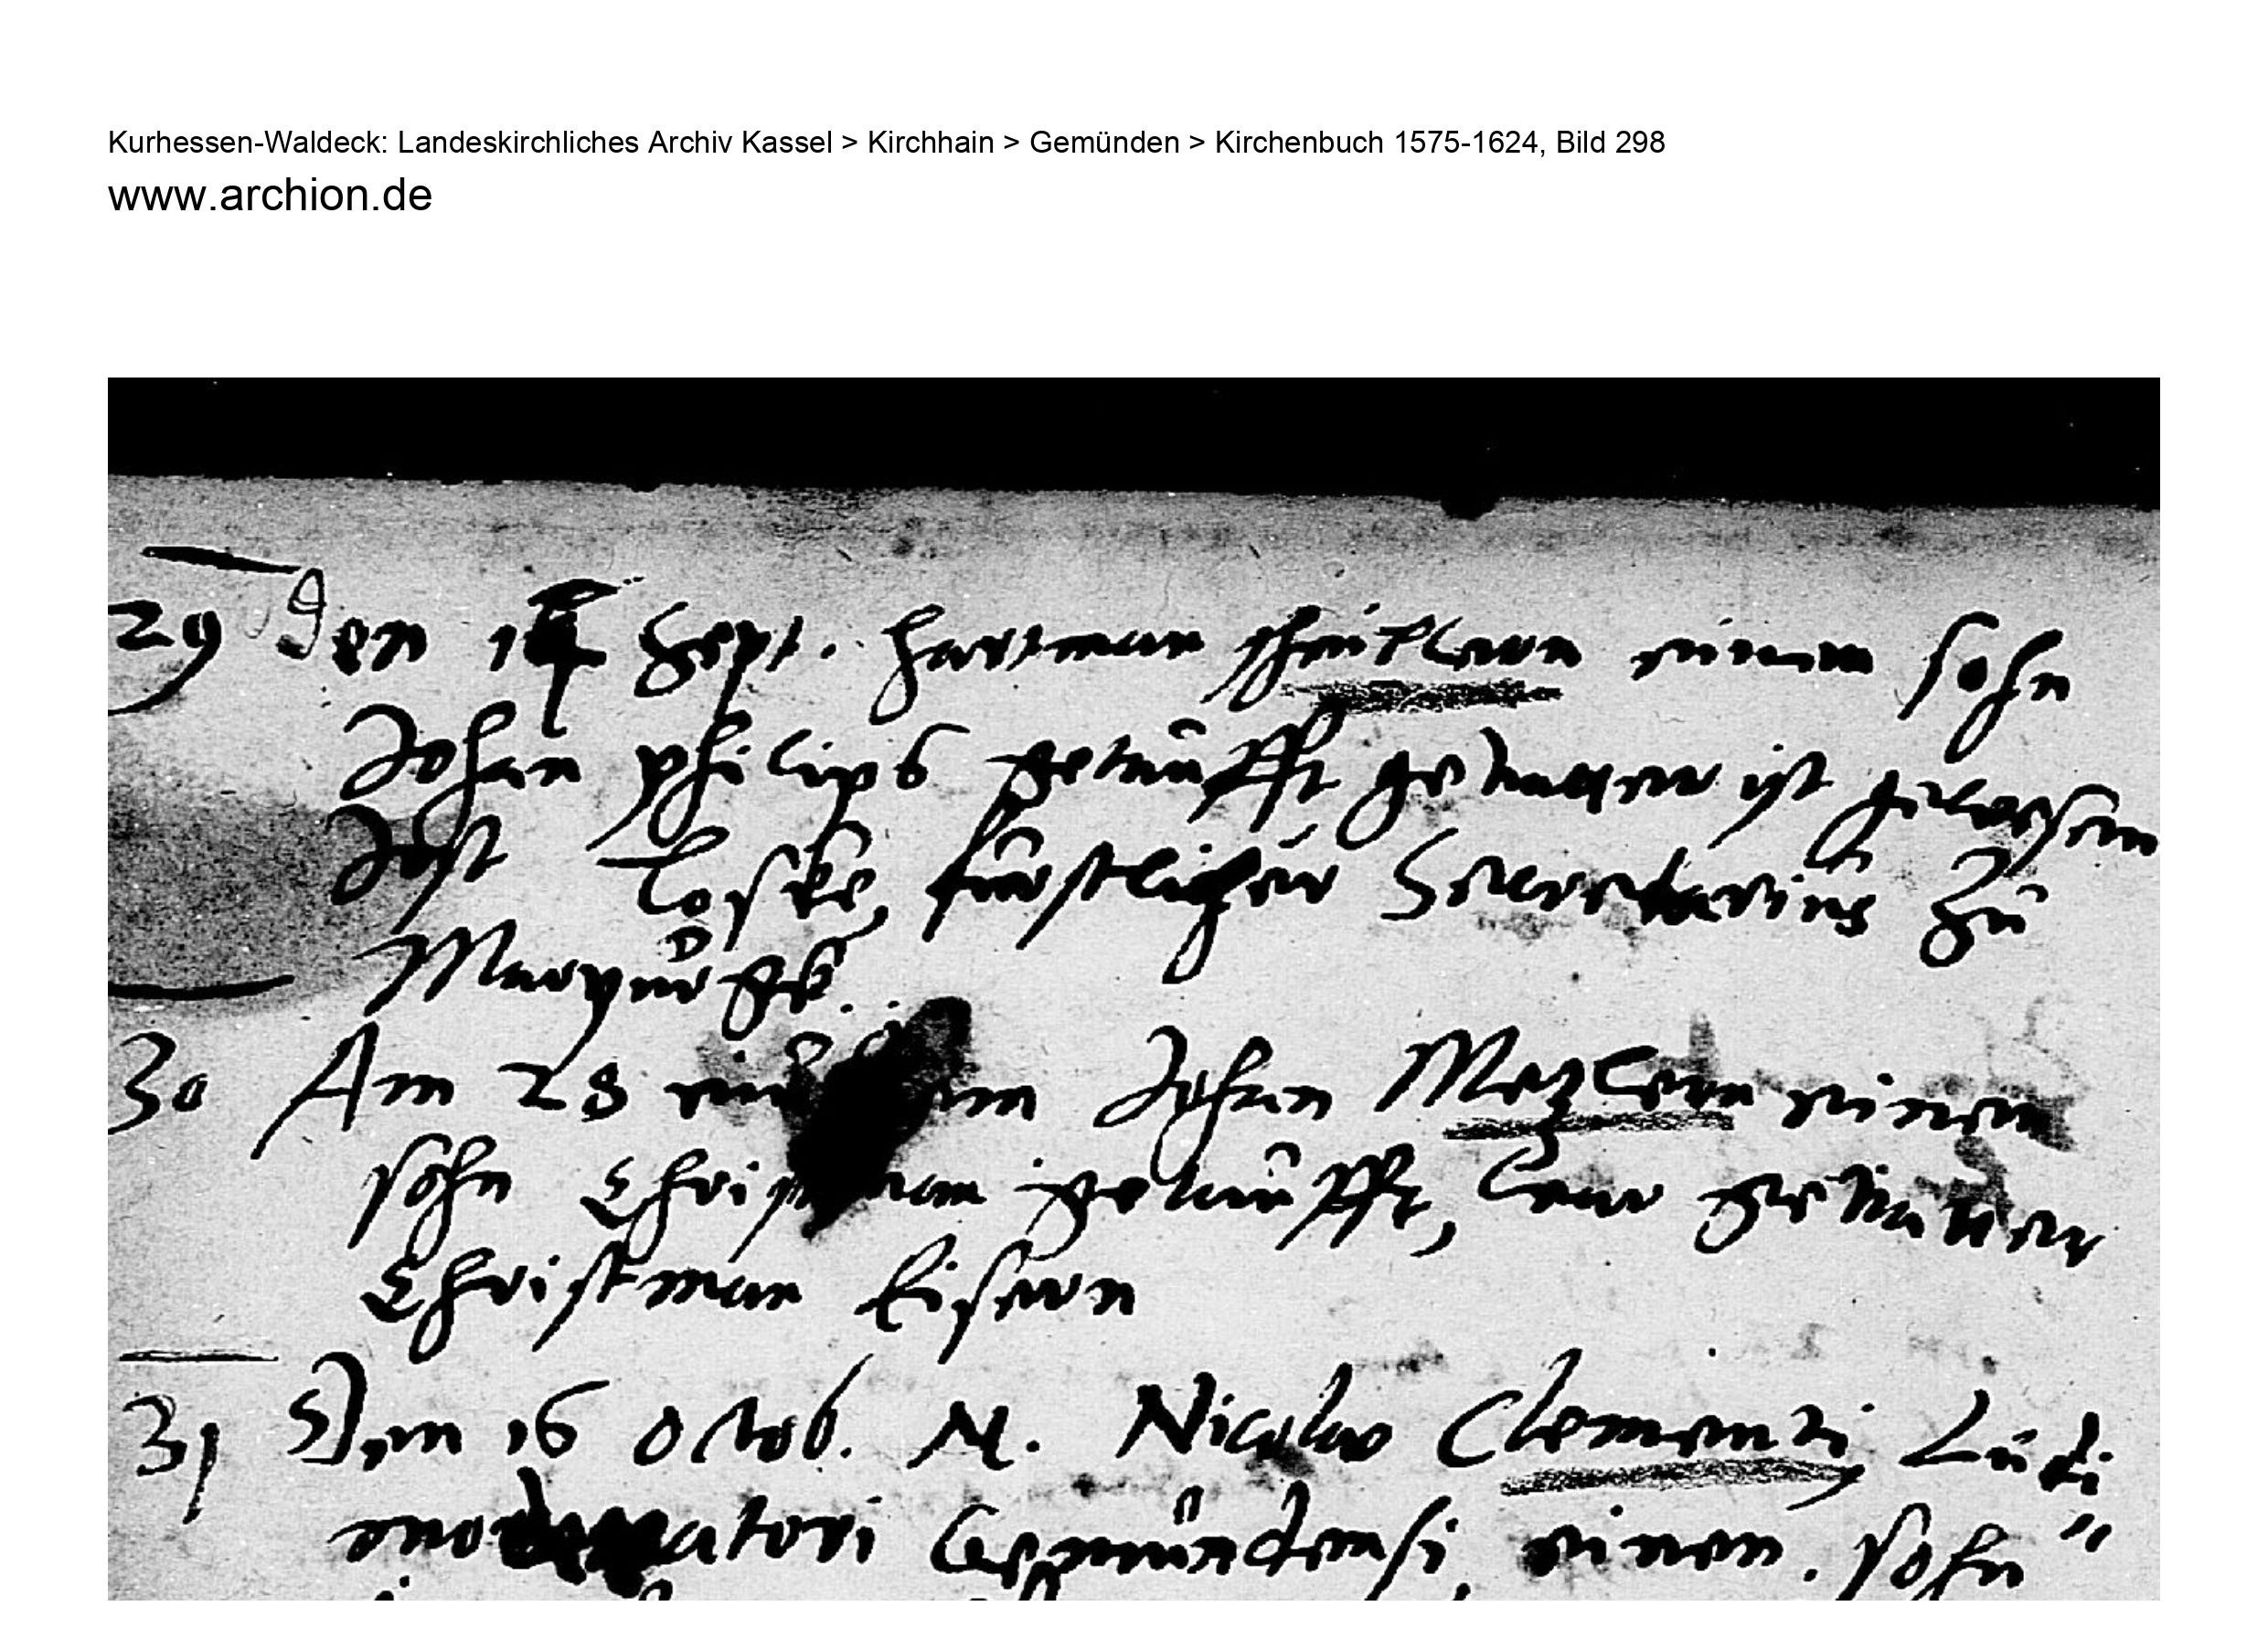 Kurhessen-Waldeck: Landeskirchliches Archiv Kassel > Kirchhain > Gemünden > Kirchenbuch 1575-1624, Bild 298
www.archion.de
29 Den Sept. Hartman einen sohn
Johan philips getaufft gevatter ist gewesen
Jost fürstlicher Secretarius zu
Marpurgk.
30 Am 28 Johan Mezlern einen
sohn Christman getaufft, gevatter
Christman Eisern
31 Den 16 Octob. M. Nicolao Clementi, Ludi
moderatori Gemündensi, einen sohn